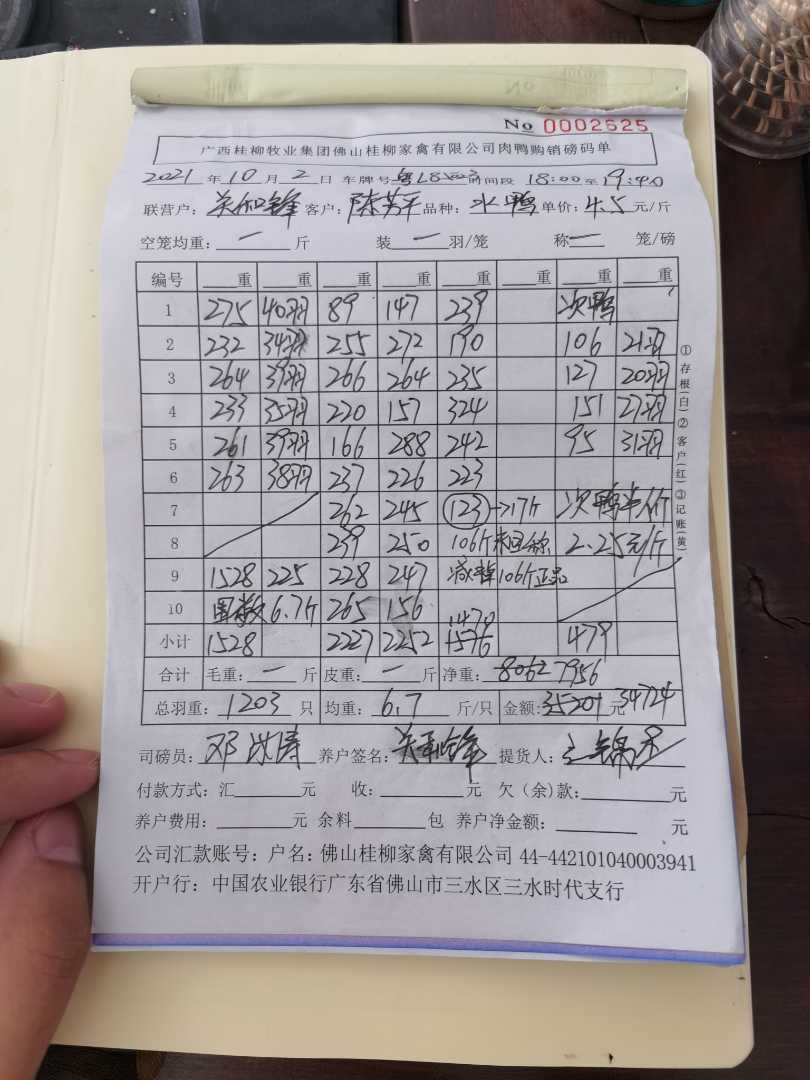 No 0002625
广西桂柳牧业集团佛山桂柳家禽有限公司肉鸭购销磅码单
2021 年 10 月 2 日 车牌号 时间段 18:00 至 19:40
联营户: 客户: 陈芳平 品种: 水鸭 单价: 4.5 元/斤
空笼均重: 一 斤 装 一 羽/笼 称 一 笼/磅
编号 重 重 重 重 重 重 重 重
1 275 40羽 89 147 239 次鸭
2 232 34羽 255 272 190 106 21羽
3 264 39羽 266 264 235 127 20羽
4 233 35羽 220 157 324 151 27羽
5 261 39羽 166 288 242 95 31羽
6 263 38羽 237 226 223
7 262 245 123→17斤 次鸭半价
8 239 250 106斤 2.25元/斤
9 1528 225 228 247 减掉106斤正品
10 6.7斤 265 156
1470
小计 1528 2227 2252 1576 479
合计 毛重: 一 斤 皮重: 一 斤 净重: 8062 7956
总羽重: 1203 只 均重: 6.7 斤/只 金额: 35201 元 34724
司磅员: 养户签名: 提货人:
付款方式: 汇 元 收: 元 欠（余）款: 元
养户费用: 元 余料 包 养户净金额: 元
公司汇款账号: 户名: 佛山桂柳家禽有限公司 44-442101040003941
开户行: 中国农业银行广东省佛山市三水区三水时代支行
①存根(白)②客户(红)③记账(黄)